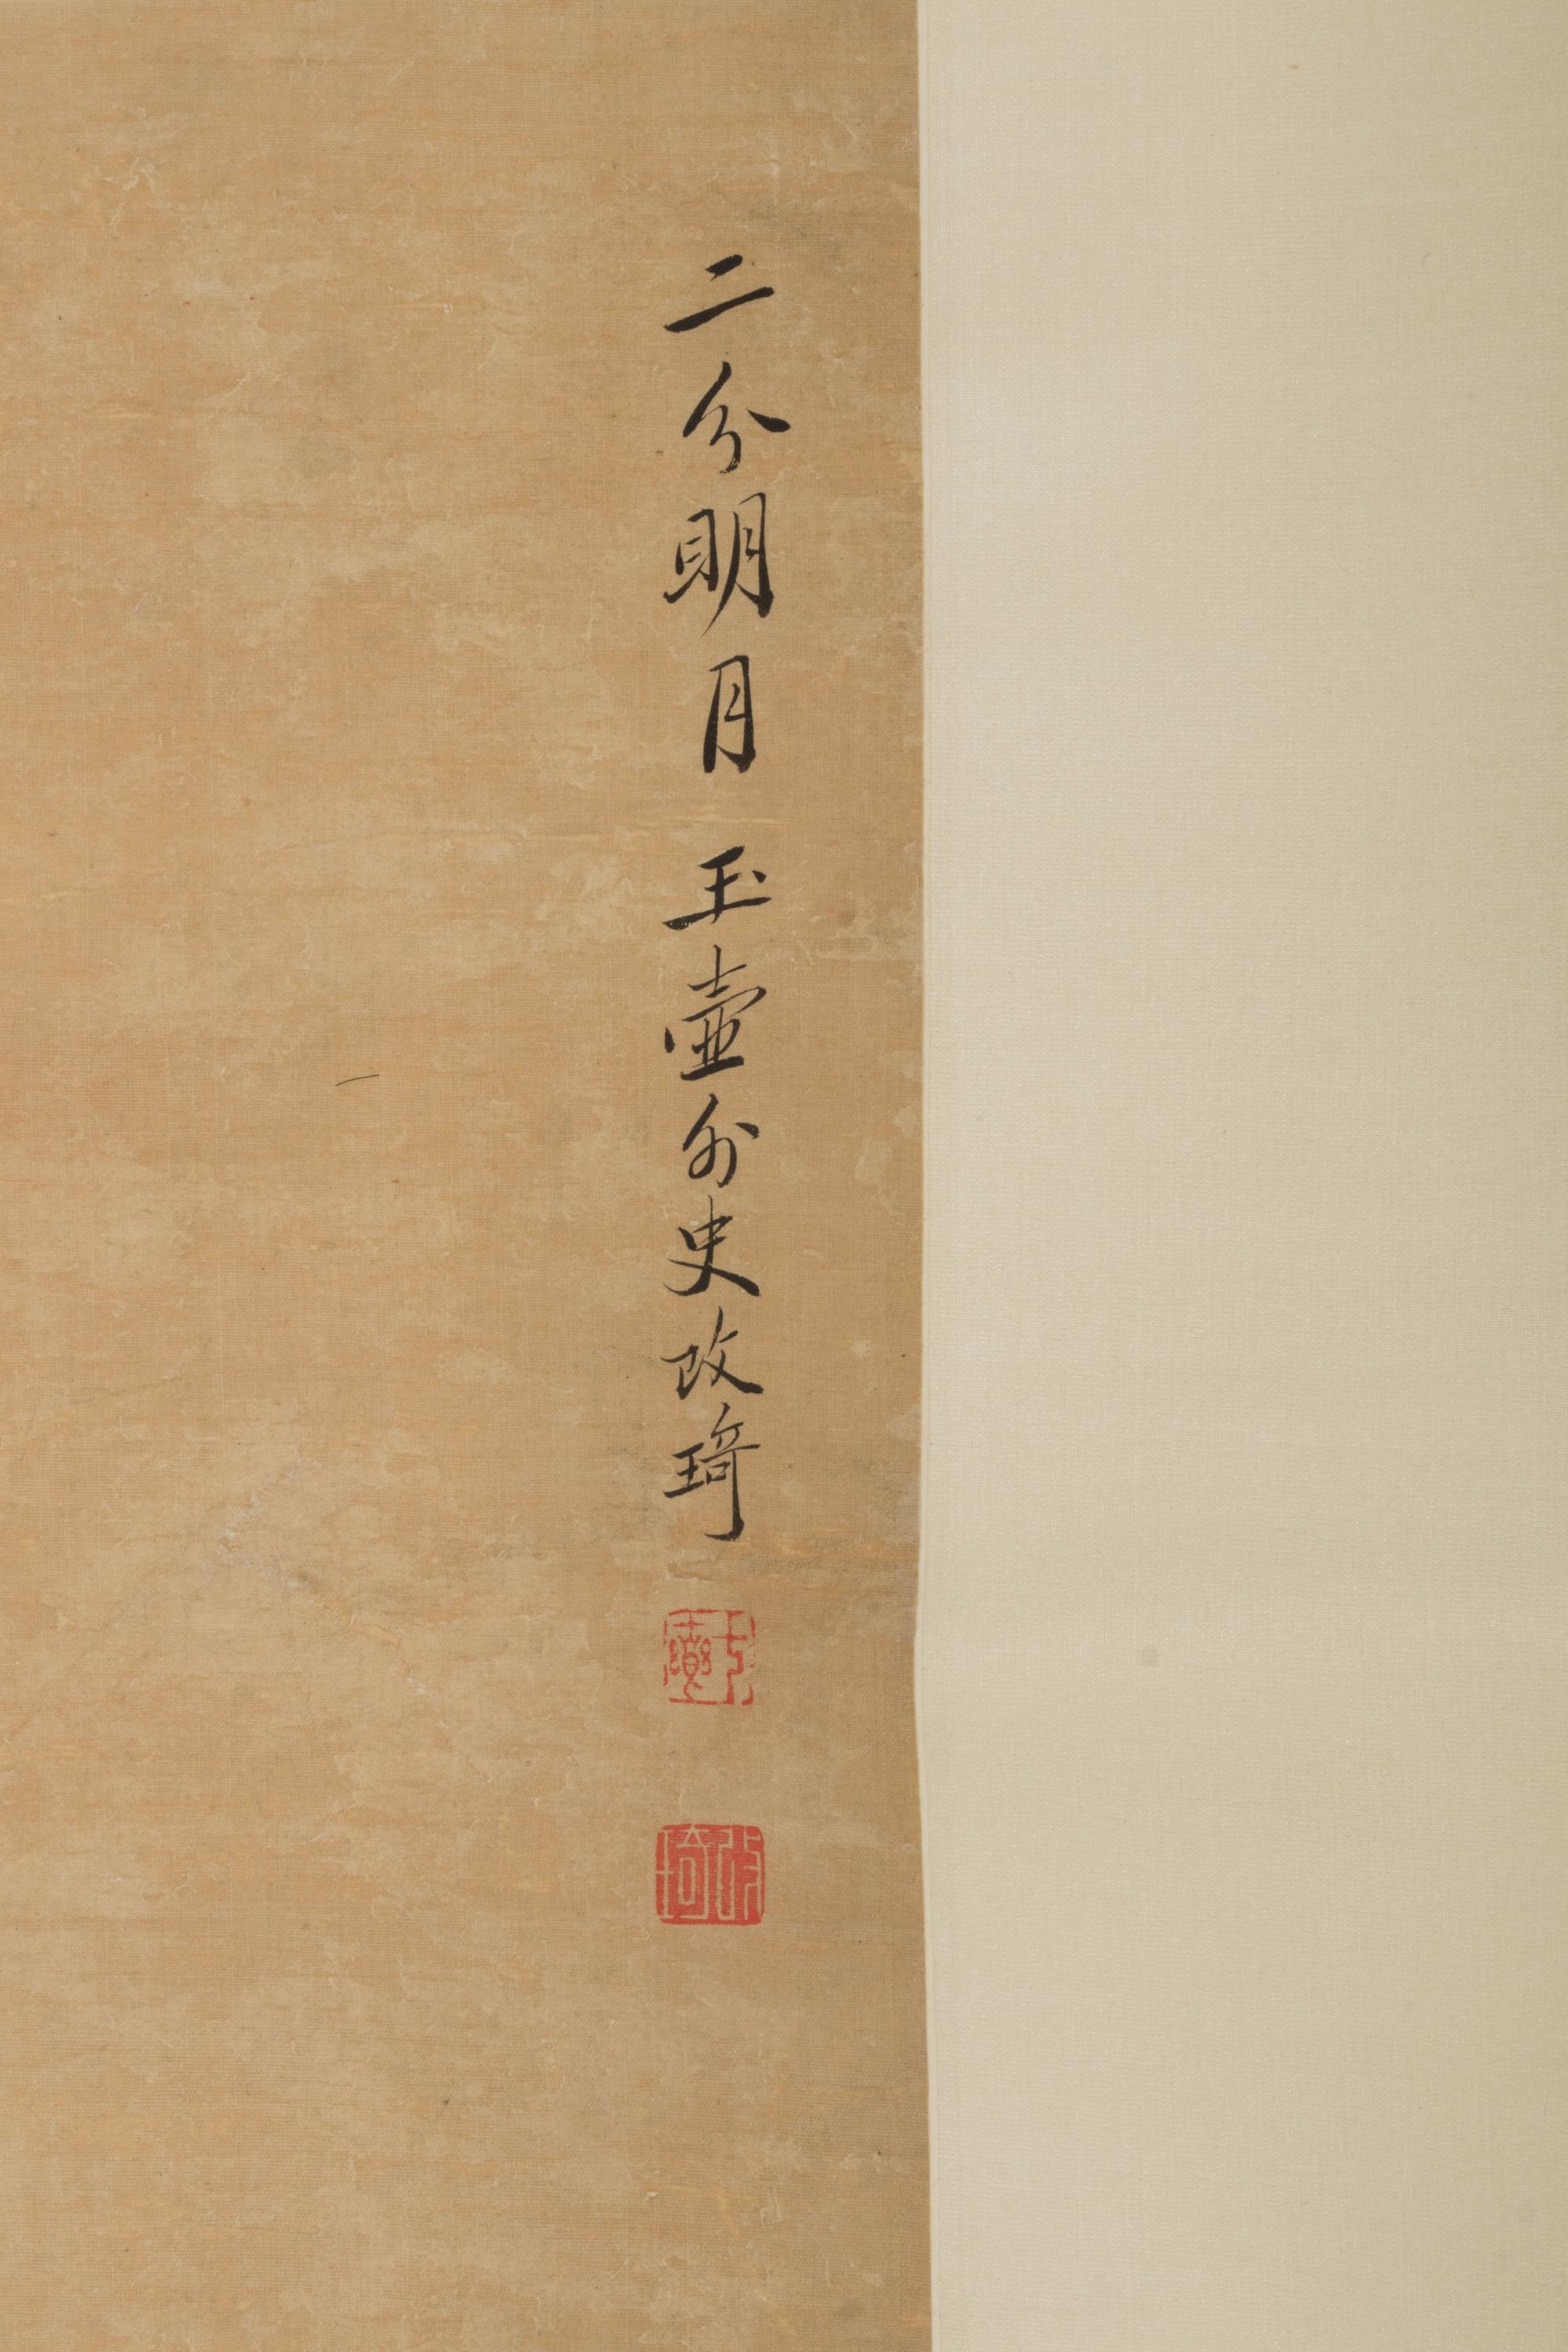 二分明月 玉壺外史改琦
七薌
改琦